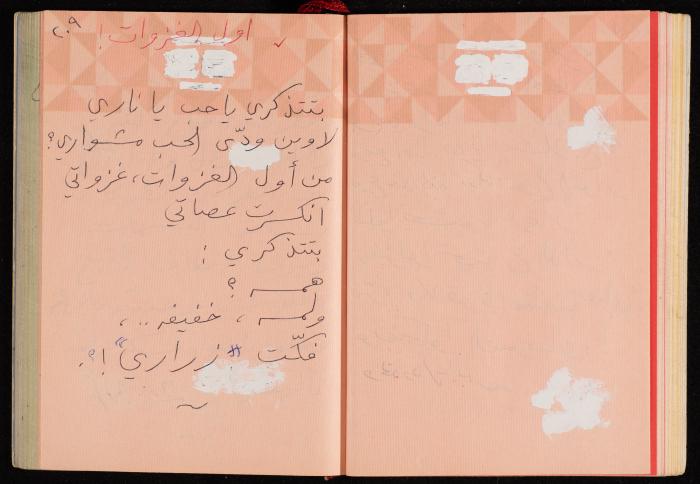 ٢٠٩
اول الغزوات!
بتتذكري يا حب يا ناري
لاوين ودّى الحب مشواري؟
من أول الغزوات، غزواتي
انكسرت عصاتي
بتتذكري:
همسه؟
ولمسه، خفيفه..،
فكّت "زراري"!؟.